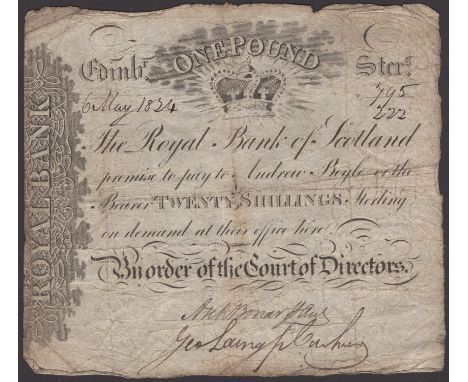 ROYAL BANK
ONE POUND
Edinbr. Sterg.
6 May 1824 795
222
The Royal Bank of Scotland
promise to pay to Andrew Bogle or the
Bearer TWENTY SHILLINGS Sterling
on demand at their office here
By order of the Court of Directors.
Arch Bonar
Geo Laing